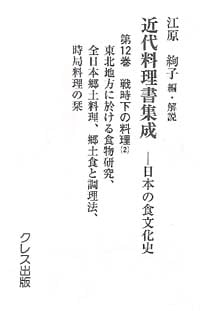 江原 絢子 編・解説
近代料理書集成
―日本の食文化史
第12巻 戦時下の料理[2]
東北地方に於ける食物研究、
全日本郷土料理、郷土食と調理法、
時局料理の栞
クレス出版